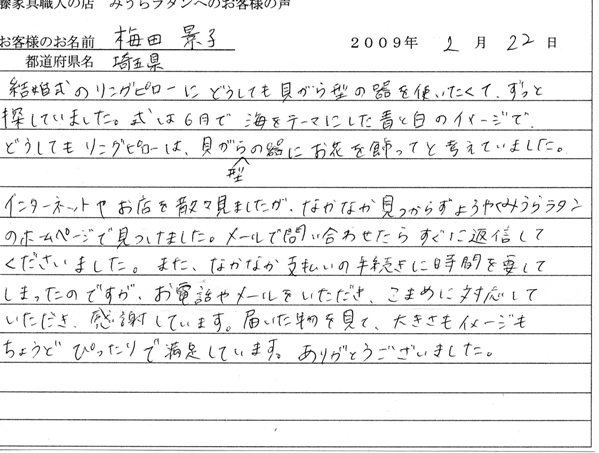 籐家具職人の店　みうらラタンへのお客様の声
お客様のお名前　梅田 景子　２００９年　2　月　22　日
都道府県名　埼玉県
結婚式のリングピローにどうしても貝がら型の器を使いたくて、ずっと
探していました。式は6月で海をテーマにした青と白のイメージで、
どうしてもリングピローは、貝がらの器にお花を飾ってと考えていました。
型
インターネットやお店を散々見ましたが、なかなか見つからずようやくみうらラタン
のホームページで見つけました。メールで問い合わせたらすぐに返信して
くださいました。また、なかなか支払いの手続きに時間を要して
しまったのですが、お電話やメールをいただき、こまめに対応して
いただき、感謝しています。届いた物を見て、大きさもイメージも
ちょうどぴったりで満足しています。ありがとうございました。